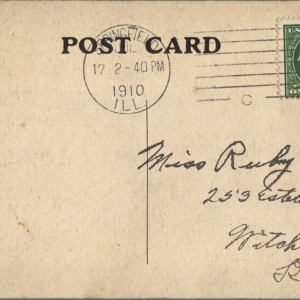 POST CARD
SPRINGFIELD
17 2-40 PM
1910
ILL.
C
Miss Ruby
253 Estel
Witch